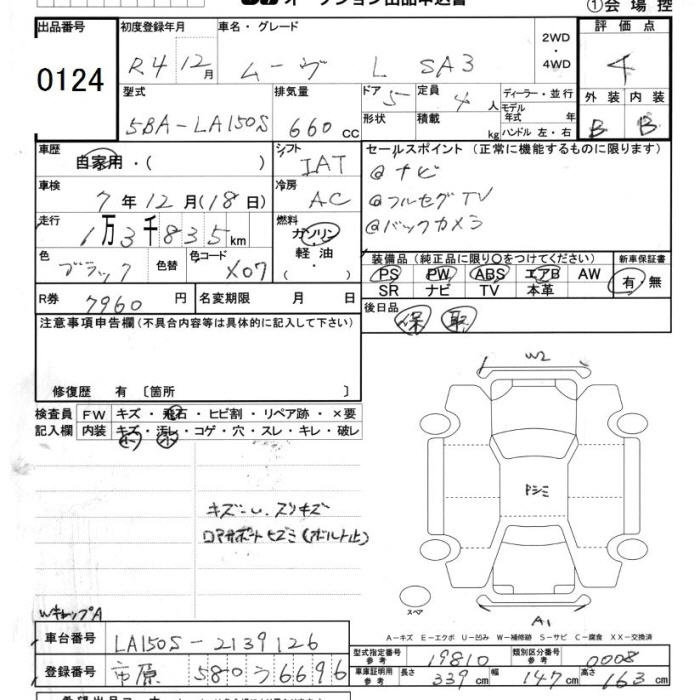 オークション出品申込書
①会場控
出品番号 0124
初度登録年月 R4 12月
車名・グレード ムーヴ L SA3
2WD・4WD
評価点 4
外装 B 内装 B
型式 5BA-LA150S
排気量 660cc
ドア 5 形状
定員 4人 積載 kg
ディーラー・並行
モデル年式 年
ハンドル 左・右
車歴 自家用・( )
シフト IAT
セールスポイント (正常に機能するものに限ります)
@ナビ
@フルセグTV
@バックカメラ
車検 7年12月(18日)
冷房 AC
走行 1万3千835km
燃料 ガソリン 軽油 ( ・ )
色 ブラック 色替 色コード X07
装備品(純正品に限り○をつけてください)
PS PW ABS エアB AW
SR ナビ TV 本革
新車保証書 有・無
R券 7960円 名変期限 月 日
後日品 保 取
注意事項申告欄(不具合内容等は具体的に記入して下さい)
修復歴 有 〔箇所 〕
検査員記入欄
FW キズ・飛石・ヒビ割・リペア跡・×要
内装 キズ・汚レ・コゲ・穴・スレ・キレ・破レ
キズ小.スリキズ
ロアサポートヒズミ(ボルト止)
WキャップA
W2
Pシミ
スペア
A1
A-キズ E-エクボ U-凹み W-補修跡 S-サビ C-腐食 XX-交換済
車台番号 LA150S-2139126
登録番号 市原 580 う 6696
型式指定番号 参考 19810
類別区分番号 参考 0008
車庫証明用 参考 長さ 339cm 幅 147cm 高さ 163cm